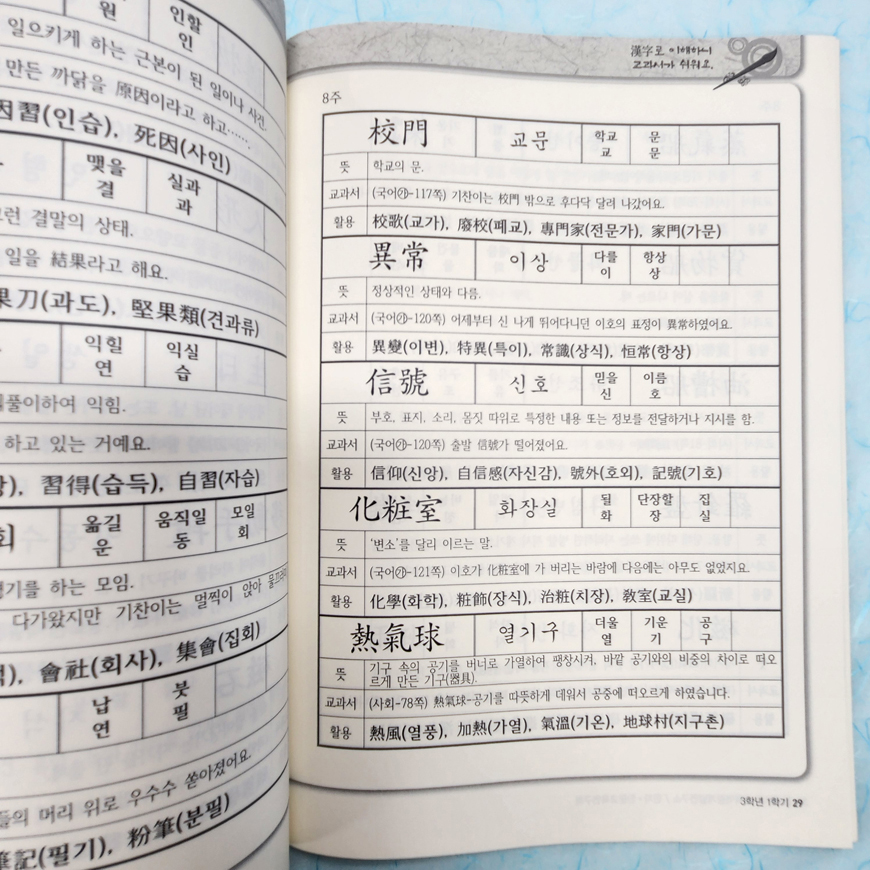 원
인할
인
일으키게 하는 근본이 된 일이나 사건.
만든 까닭을 原因이라고 하고……
因習(인습), 死因(사인)
맺을
결
실과
과
결말의 상태.
일을 結果라고 해요.
果刀(과도), 堅果類(견과류)
익힐
연
익실
습
풀이하여 익힘.
하고 있는 거예요.
習得(습득), 自習(자습)
회
옮길
운
움직일
동
모일
회
경기를 하는 모임.
다가왔지만 기찬이는 멀찍이 앉아
會社(회사), 集會(집회)
납
연
붓
필
들의 머리 위로 우수수 쏟아졌어요.
筆記(필기), 粉筆(분필)
漢字로 이해하니
교과서가 쉬워요.
8주
校門 교문 학교 교 문 문
뜻 학교의 문.
교과서 (국어㉮-117쪽) 기찬이는 校門 밖으로 후다닥 달려 나갔어요.
활용 校歌(교가), 廢校(폐교), 專門家(전문가), 家門(가문)
異常 이상 다를 이 항상 상
뜻 정상적인 상태와 다름.
교과서 (국어㉮-120쪽) 어제부터 신 나게 뛰어다니던 이호의 표정이 異常하였어요.
활용 異變(이변), 特異(특이), 常識(상식), 恒常(항상)
信號 신호 믿을 신 이름 호
뜻 부호, 표지, 소리, 몸짓 따위로 특정한 내용 또는 정보를 전달하거나 지시를 함.
교과서 (국어㉮-120쪽) 출발 信號가 떨어졌어요.
활용 信仰(신앙), 自信感(자신감), 號外(호외), 記號(기호)
化粧室 화장실 될 화 단장할 장 집 실
뜻 ‘변소’를 달리 이르는 말.
교과서 (국어㉮-121쪽) 이호가 化粧室에 가 버리는 바람에 다음에는 아무도 없었지요.
활용 化學(화학), 粧飾(장식), 治粧(치장), 敎室(교실)
熱氣球 열기구 더울 열 기운 기 공 구
뜻 기구 속의 공기를 버너로 가열하여 팽창시켜, 바깥 공기와의 비중의 차이로 떠오
르게 만든 기구(器具).
교과서 (사회-78쪽) 熱氣球-공기를 따뜻하게 데워서 공중에 떠오르게 하였습니다.
활용 熱風(열풍), 加熱(가열), 氣溫(기온), 地球村(지구촌)
3학년 1학기 29